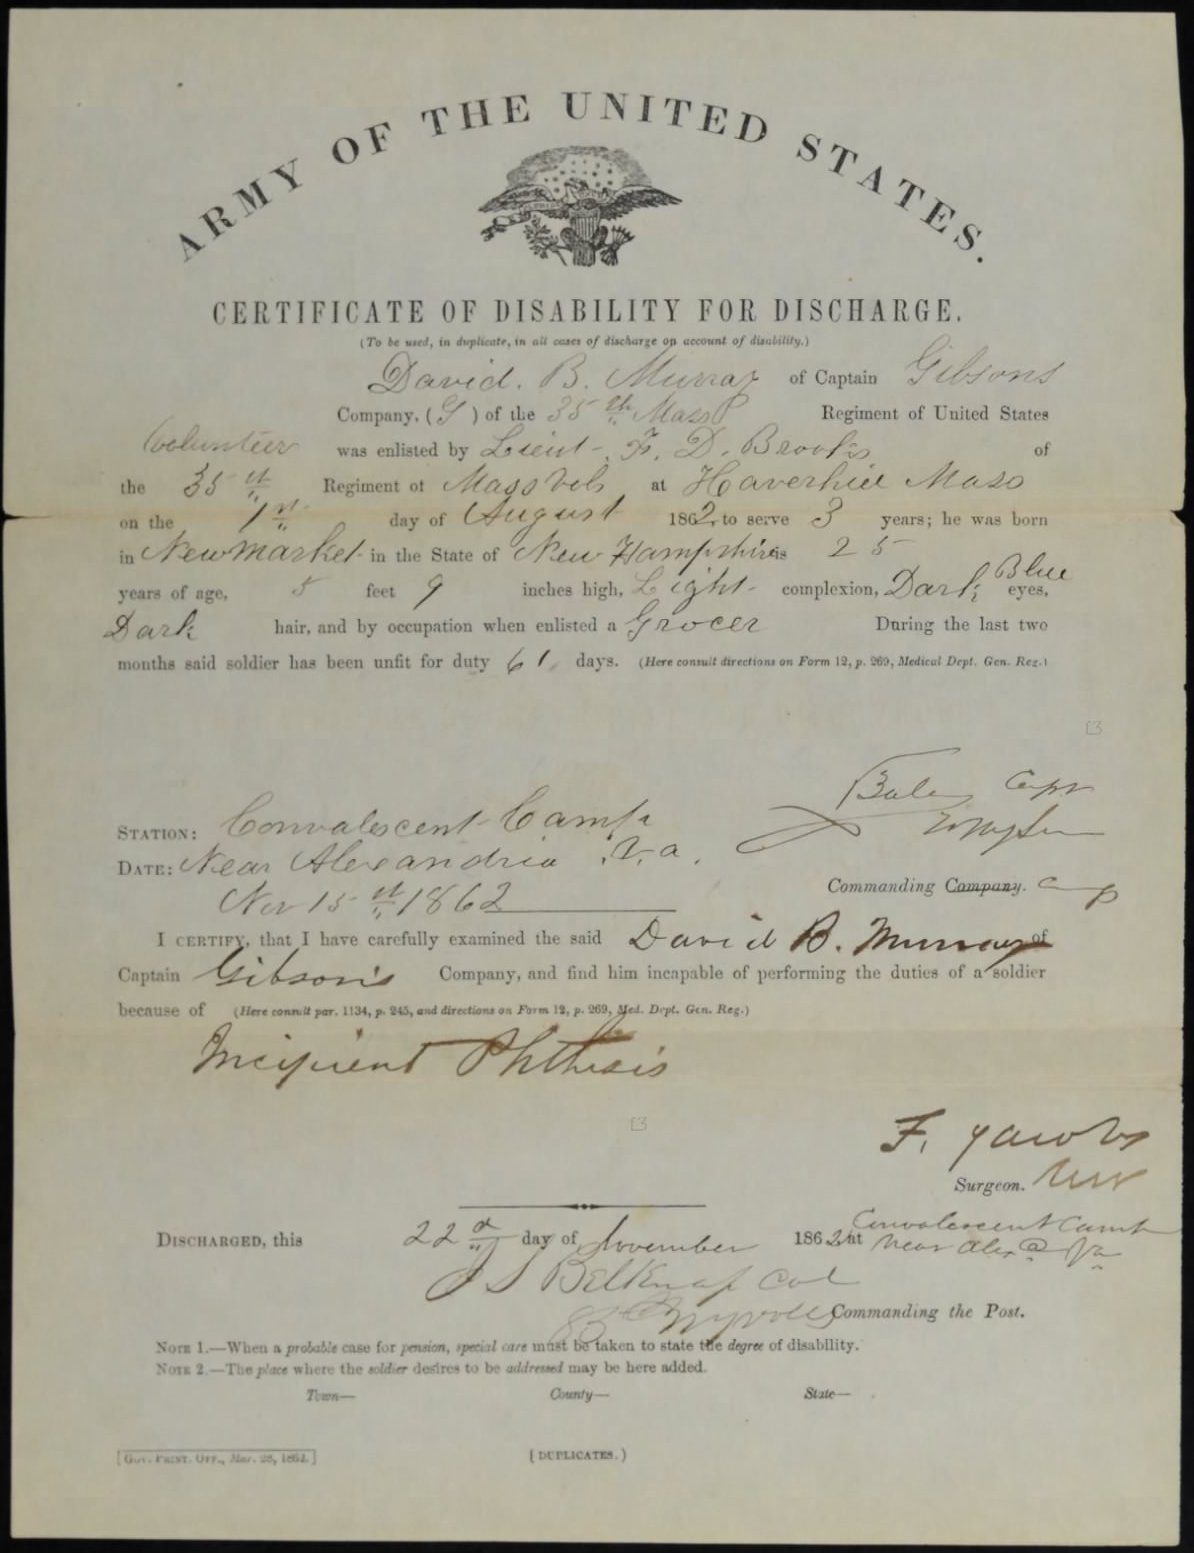 ARMY OF THE UNITED STATES.
CERTIFICATE OF DISABILITY FOR DISCHARGE.
(To be used, in duplicate, in all cases of discharge on account of disability.)
David. B. Murray of Captain Gibsons
Company, (G) of the 35th Mass Regiment of United States
Volunteer was enlisted by Lieut. F. D. Brooks of
the 35th Regiment of Mass Vols at Haverhill Mass
on the 1st day of August 1862 to serve 3 years; he was born
in Newmarket in the State of New Hampshire is 25
years of age, 5 feet 9 inches high, Light complexion, Dark Blue eyes,
Dark hair, and by occupation when enlisted a Grocer During the last two
months said soldier has been unfit for duty 61 days. (Here consult directions on Form 12, p. 269, Medical Dept. Gen. Reg.)
Capt
STATION: Convalescent Camp
DATE: Near Alexandria Va.
Commanding Company. Camp
Nov 15th 1862
I CERTIFY, that I have carefully examined the said David B. Murray of
Captain Gibson's Company, and find him incapable of performing the duties of a soldier
because of (Here consult par. 1134, p. 245, and directions on Form 12, p. 269, Med. Dept. Gen. Reg.)
Incipient Phthisis
F. Jacobs
Surgeon.
DISCHARGED, this 22d day of November 1862 at Convalescent Camp
near Alexa Va
J S Belknap Col
Commanding the Post.
NOTE 1.—When a probable case for pension, special care must be taken to state the degree of disability.
NOTE 2.—The place where the soldier desires to be addressed may be here added.
Town— County— State—
[GOV. PRINT. OFF., Mar. 28, 1862.] (DUPLICATES.)